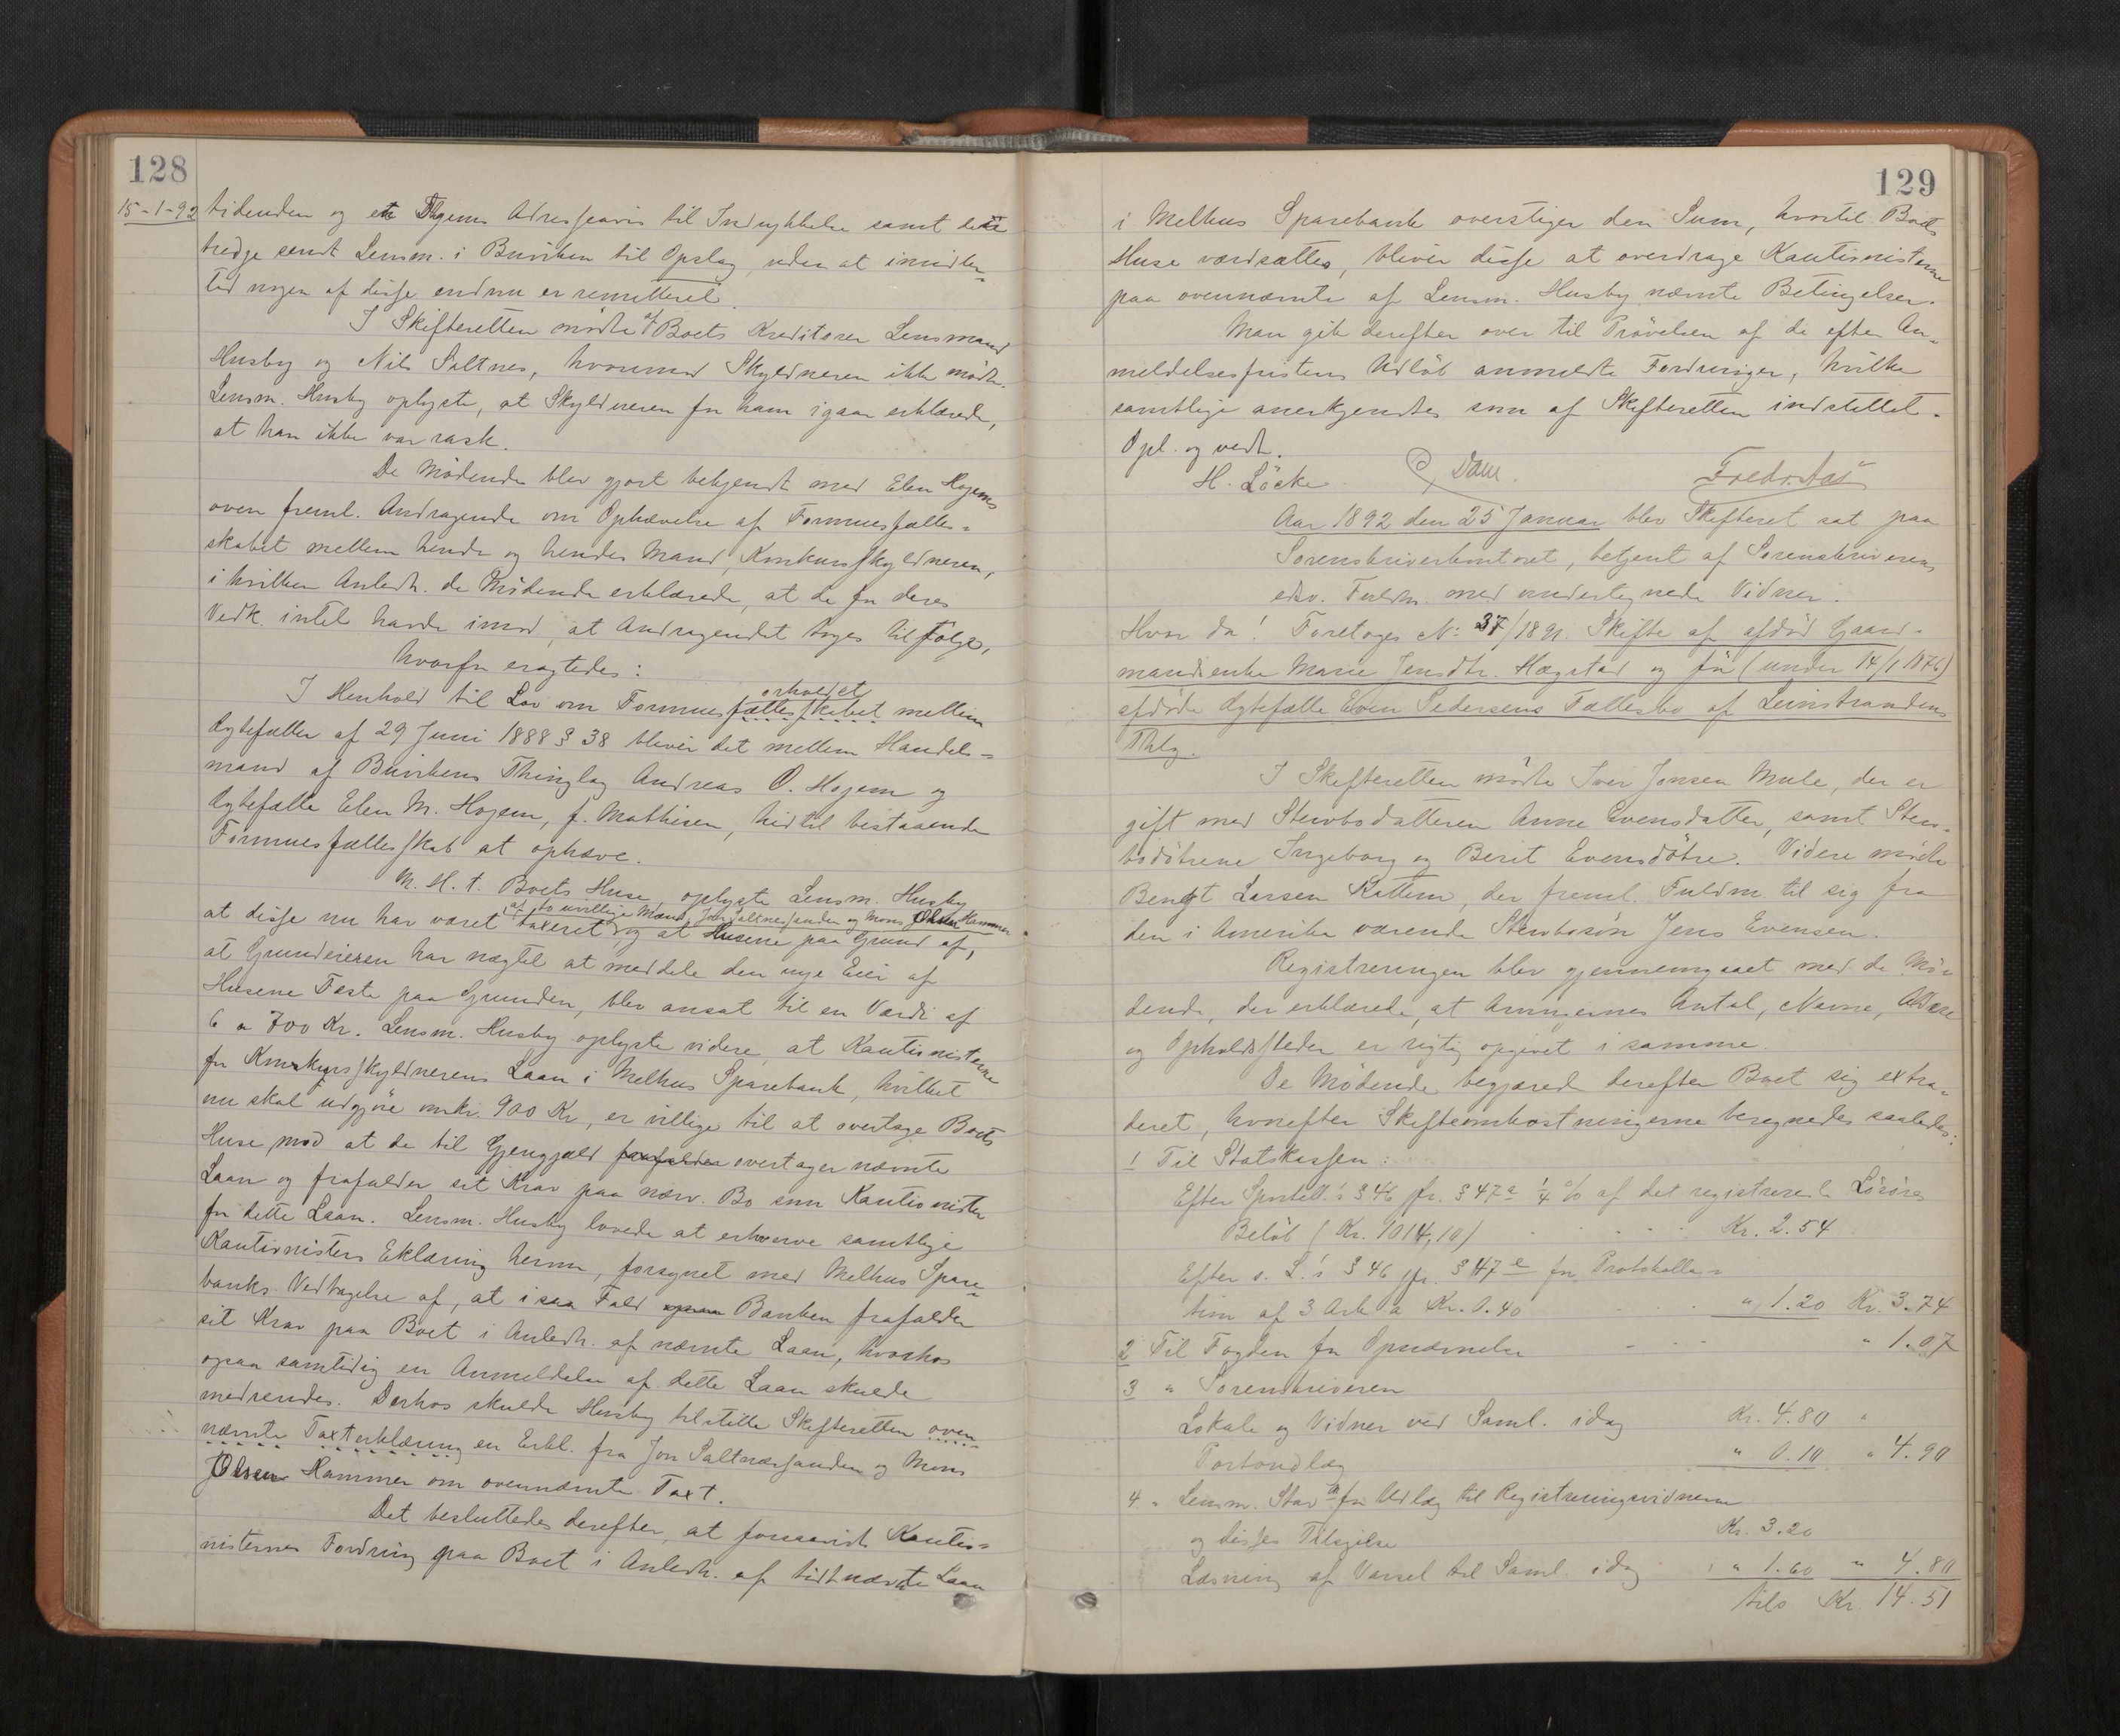 128
15-1-92 tidenden og en Thjems Adresseavis til Indrykkelse samt det
tredje sendt Lensm. i Buviken til Opslag, uden at imidler-
tid nogen af disse endnu er remitteret.
I Skifteretten mødte af Boets Kreditorer Lensmand
Husby og Nils Saltnes, hvorimod Skyldneren ikke mødte.
Lensm. Husby oplyste, at Skyldneren for ham igaar erklærede,
at han ikke var rask.
De Mødende blev gjort bekjendt med Elen Hogems
oven freml. Andragende om Ophævelse af Formuesfælles-
skabet mellem hende og hendes Mand, Konkursskyldneren,
i hvilken Anledn. de Mødende erklærede, at de for deres
Vedk. intet havde imod, at Andragendet toges til følge,
hvorfor eragtedes:
I Henhold til Lov om Formuesfællesskabet orholdet mellem
Ægtefæller af 29 Juni 1888 § 38 bliver det mellem Handels-
mand af Buvikens Thinglag Andreas O. Hogem og
Ægtefælle Elen M. Hogem, f. Mathisen, hidtil bestaaende
Formuesfællesskab at ophæve.
M. H. t. Boets Huse oplyste Lensm. Husby
af to uvillige Mænd, Jon Saltnessanden og Mons Olsen Hammer
at disse nu har været taxeret, og at Husene paa Grund af,
at Grundeieren har nægtet at meddele den nye Eier af
Husene Fæste paa Grunden, blev ansat til en Værdi af
6 a 700 Kr. Lensm. Husby oplyste videre, at Kautionisterne
for Konkursskyldnerens Laan i Melhus Sparebank, hvilket
nu skal udgjøre omkr. 900 Kr, er villige til at overtage Boets
Huse mod at de til Gjengjæld frafalder overtager nævnte
Laan og frafalder sit Krav paa nærv. Bo som Kautionister
for dette Laan. Lensm. Husby lovede at erhverve samtlige
Kautionisters Eklæring herom, forsynet med Melhus Spare-
banks Vedtagelse af, at i saa Fald ogsaa Banken frafalder
sit Krav paa Boet i Anledn. af nævnte Laan, hvorhos
ogsaa samtidig en Anmeldelse af dette Laan skulde
medsendes. Derhos skulde Husby tilstille Skifteretten oven-
nævnte Taxterklæring en Erkl. fra Jon Saltnessanden og Mons
Olsen Hammer om ovennævnte Taxt.
Det besluttedes derefter, at forsaavidt Kautio-
nisternes Fordring paa Boet i Anledn. af tidtnævnte Laan
129
i Melhus Sparebank overstiger den Sum, hvortil Boets
Huse værdsættes, bliver disse at overdrage Kautionisterne
paa ovennævnte af Lensm. Husby nævnte Betingelser.
Man gik derefter over til Prøvelsen af de efter An-
meldelsesfristens Udløb anmeldte Fordringer, hvilke
samtlige anerkjendtes som af Skifteretten indstillet.
Opl. og vedt.
H. Löcke Dam Fredr. Aas
Aar 1892 den 25 Januar blev Skifteret sat paa
Sorenskriverkontoret, betjent af Sorenskriverens
edsv. Fuldm. med undertegnede Vidner.
Hvor da! Foretoges No 37/1891. Skifte af afdød Gaard-
mandsenke Marie Jensdtr. Hægstad og før (under 14/1 1876)
afdøde Ægtefælle Even Pedersens Fællesbo af Leinstrandens
Thlg.
I Skifteretten mødte Iver Jonsen Mule, der er
gift med Stervbodatteren Anne Evensdatter, samt Sterv-
bodøtrene Ingeborg og Berit Evensdøtre. Videre mødte
Bengt Larsen Kattem, der freml. Fuldm. til sig fra
den i Amerika værende Stervbosøn Jens Evensen.
Registreringen blev gjennemgaaet med de Mø-
dende, der erklærede, at Arvingernes Antal, Navne, Aldere
og Opholdssteder er rigtig opgivet i samme.
De Mødende begjæred derefter Boet sig extra-
deret, hvorefter Skifteomkostningerne beregnedes saaledes:
1 Til Statskassen:
Efter Sportell.s § 46 jfr. § 47 a 1/4 % af det registrerede Løsøre
Beløb (Kr. 1014,10) Kr. 2.54
Efter s. L.s § 46 jfr. § 47 e for Protokolla-
tion af 3 Ark a Kr. 0.40 " 1.20 Kr. 3.74
2 Til Fogden for Opnævnelse " 1.07
3 " Sorenskriveren
Lokale og Vidner ved Saml. idag Kr. 4.80 "
Portoudlæg " 0.10 " 4.90
4 " Lensm. Stav for Udlæg til Registreringsvidnerne
og disses Tilsigelse Kr. 3.20
Læsning af Varsel til Saml. idag " 1.60 " 4.80
tils Kr. 14.51